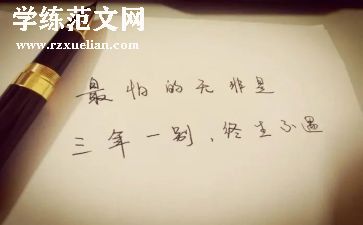 学练范文网
www.rzxuelian.com
最怕的无非是
三年一别，终生不遇